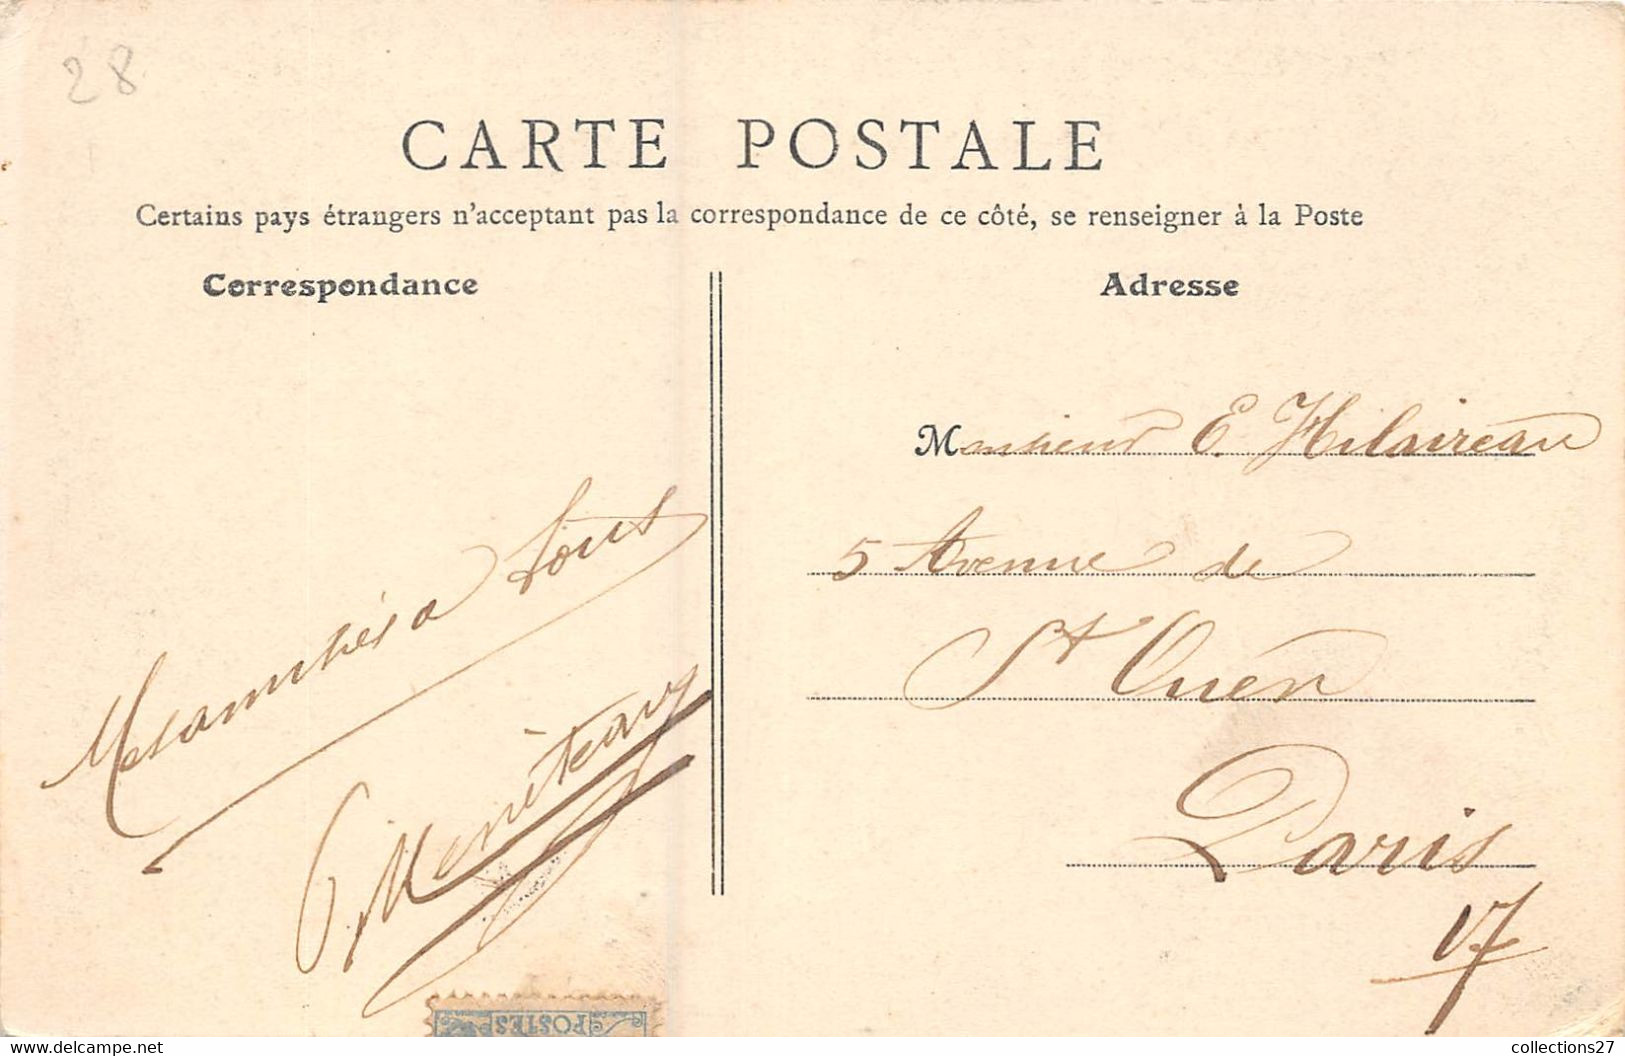 28
CARTE POSTALE
Certains pays étrangers n'acceptant pas la correspondance de ce côté, se renseigner à la Poste
Correspondance
Adresse
Monsieur E. Hilaireau
5 Avenue de
St Ouen
Paris
17
Mes amitiés a tous
POSTES
www.delcampe.net
collections27